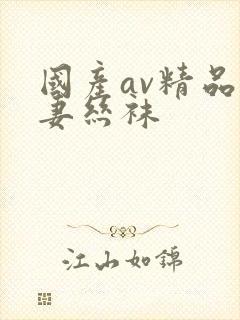 國産av精品
妻丝袜
江山如錦